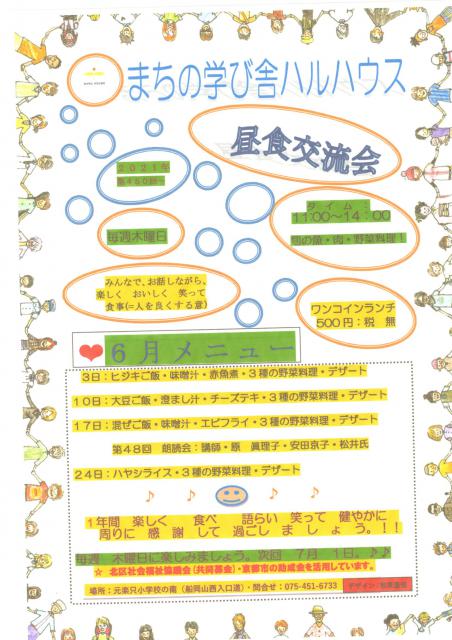 まちの学び舎ハルハウス
昼食交流会
2021年
第460回~
毎週木曜日
タイム:
11:00~14:00
旬の魚・肉・野菜料理!
みんなで、お話しながら、
楽しく おいしく 笑って
食事(=人を良くする意)
ワンコインランチ
500円:税 無
6月メニュー
3日:ヒジキご飯・味噌汁・赤魚煮・3種の野菜料理・デザート
10日:大豆ご飯・澄まし汁・チーズテキ・3種の野菜料理・デザート
17日:混ぜご飯・味噌汁・エビフライ・3種の野菜料理・デザート
第48回 朗読会:講師・原 眞理子・安田京子・松井氏
24日:ハヤシライス・3種の野菜料理・デザート
1年間 楽しく 食べ 語らい 笑って 健やかに
周りに 感 謝 して 過ごし ま しょ う。!!
毎週 木曜日に楽しみましょう。次回 7月 1日。♪♪
☆ 北区社会福祉協議会(共同募金)・京都市の助成金を活用しています。
場所:元楽只小学校の南(船岡山西入口道)・問合せ:075-451-6733
デザイン: